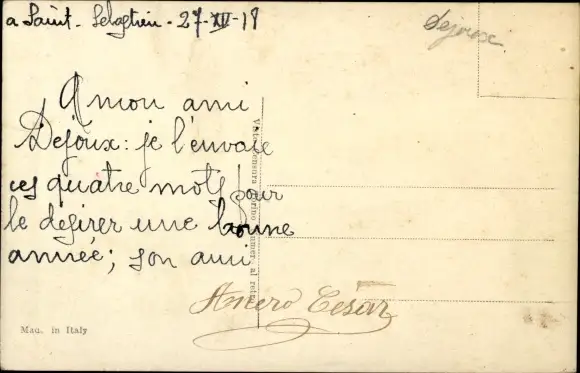 a Saint-Sebastien - 27-XII-18
Dejoux
A mon ami
Dejoux: je l'envoie
ces quatre mots pour
le desirer une bonne
année; son ami
Cesar
Mad. in Italy